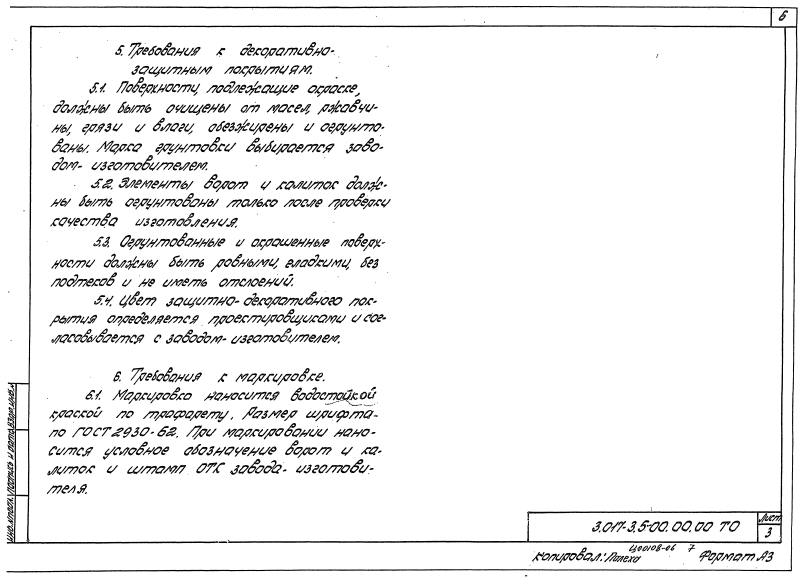 6
5. Требования к декоративно-
защитным покрытиям.
5.1. Поверхности, подлежащие окраске,
должны быть очищены от масел, ржавчи-
ны, грязи и влаги, обезжирены и огрунто-
ваны. Марка грунтовки выбирается заво-
дом- изготовителем.
5.2. Элементы ворот и калиток долж-
ны быть огрунтованы только после проверки
качества изготовления.
5.3. Огрунтованные и окрашенные поверх-
ности должны быть ровными, гладкими, без
подтеков и не иметь отслоений.
5.4. Цвет защитно-декоративного пок-
рытия определяется проектировщиками и сог-
ласовывается с заводом-изготовителем.
6. Требования к маркировке.
6.1. Маркировка наносится водостойкой
краской по трафарету. Размер шрифта-
по ГОСТ 2930-62. При маркировании нано-
сится условное обозначение ворот и ка-
литок и штамп ОТК завода- изготови-
теля.
Инв.№подл. Подпись и дата Взам.инв.№
3.017-3.5-00.00.00 ТО
Лист
3
Ц00108-06 7
Копировал: Формат А3